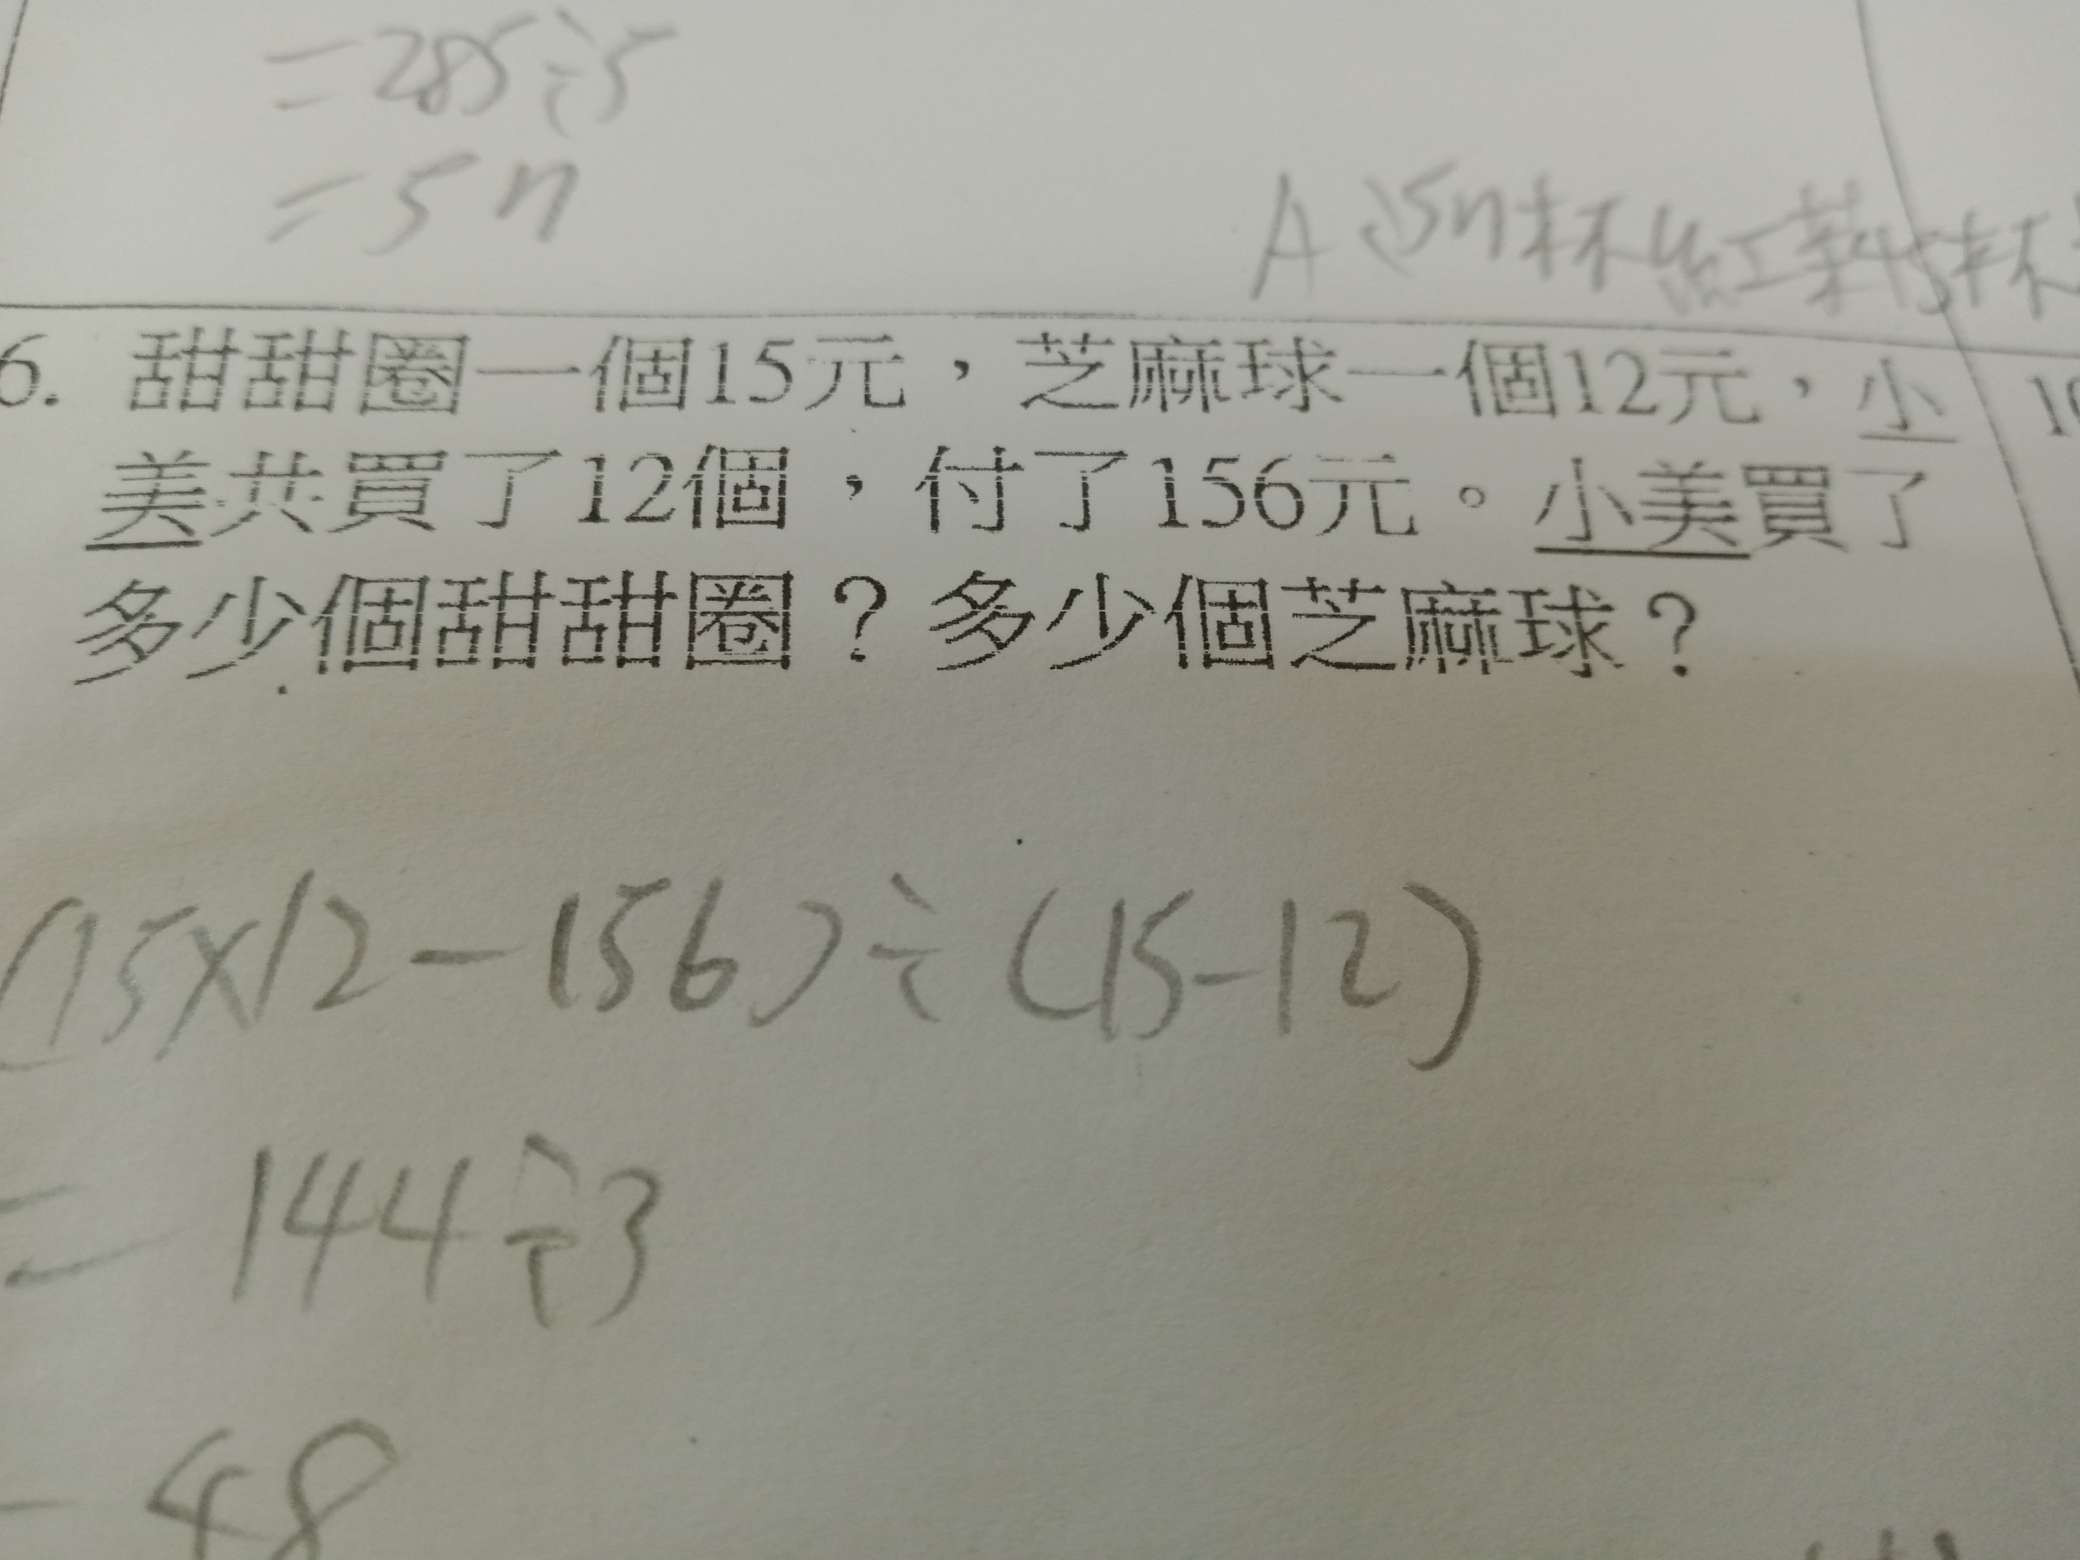 =285÷5
=5
A
6. 甜甜圈一個15元，芝麻球一個12元，小
美共買了12個，付了156元。小美買了
多少個甜甜圈？多少個芝麻球？
(15×12-156)÷(15-12)
= 144÷3
48